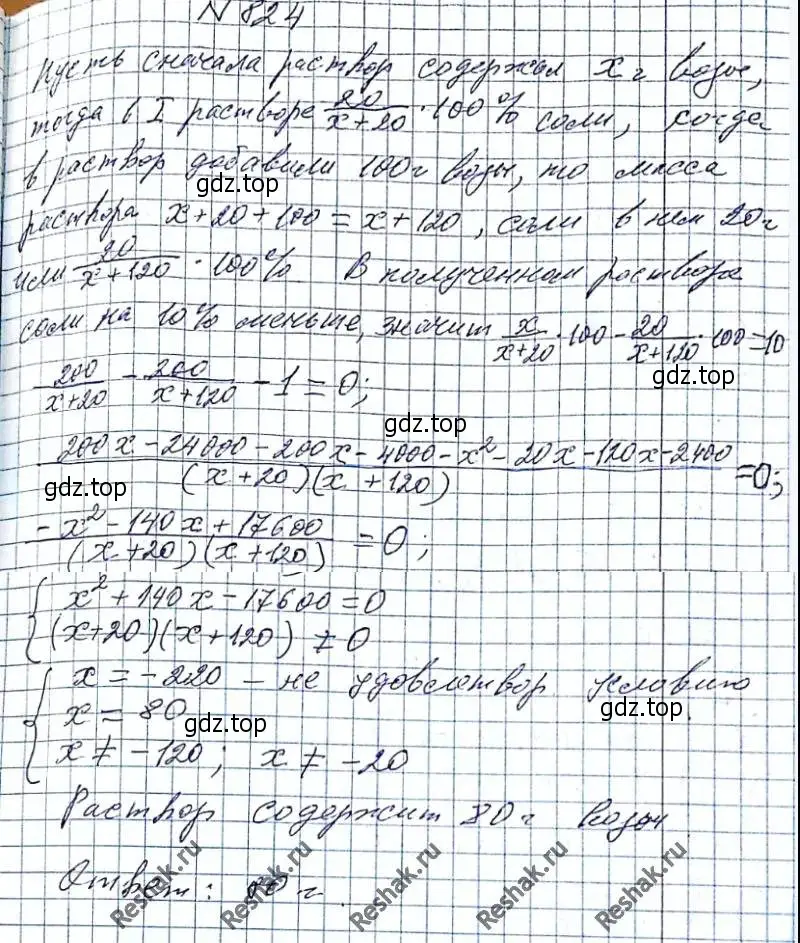 N 824
Пусть сначала раствор содержал x г воды,
тогда в I растворе 20/(x+20) · 100% соли, когда
в раствор добавили 100 г воды, то масса
gdz.top
раствора x+20+100 = x+120, соли в нем 20 г
или 20/(x+120) · 100% В полученном растворе
соли на 10% меньше, значит x/(x+20) · 100 - 20/(x+120) · 100 = 10
gdz.top
200/(x+20) - 200/(x+120) - 1 = 0;
gdz.top
(200x - 24000 - 200x - 4000 - x² - 20x - 120x - 2400)/((x+20)(x+120)) = 0;
gdz.top
(-x² - 140x + 17600)/((x+20)(x+120)) = 0;
gdz.top
{ x² + 140x - 17600 = 0
(x+20)(x+120) ≠ 0
{ x = -220 - не удовлетвор условию
x = 80
gdz.top gdz.top
x ≠ -120; x ≠ -20
Раствор содержит 80 г воды
Ответ: 80 г.
Reshak.ru Reshak.ru Reshak.ru Reshak.ru Reshak.ru